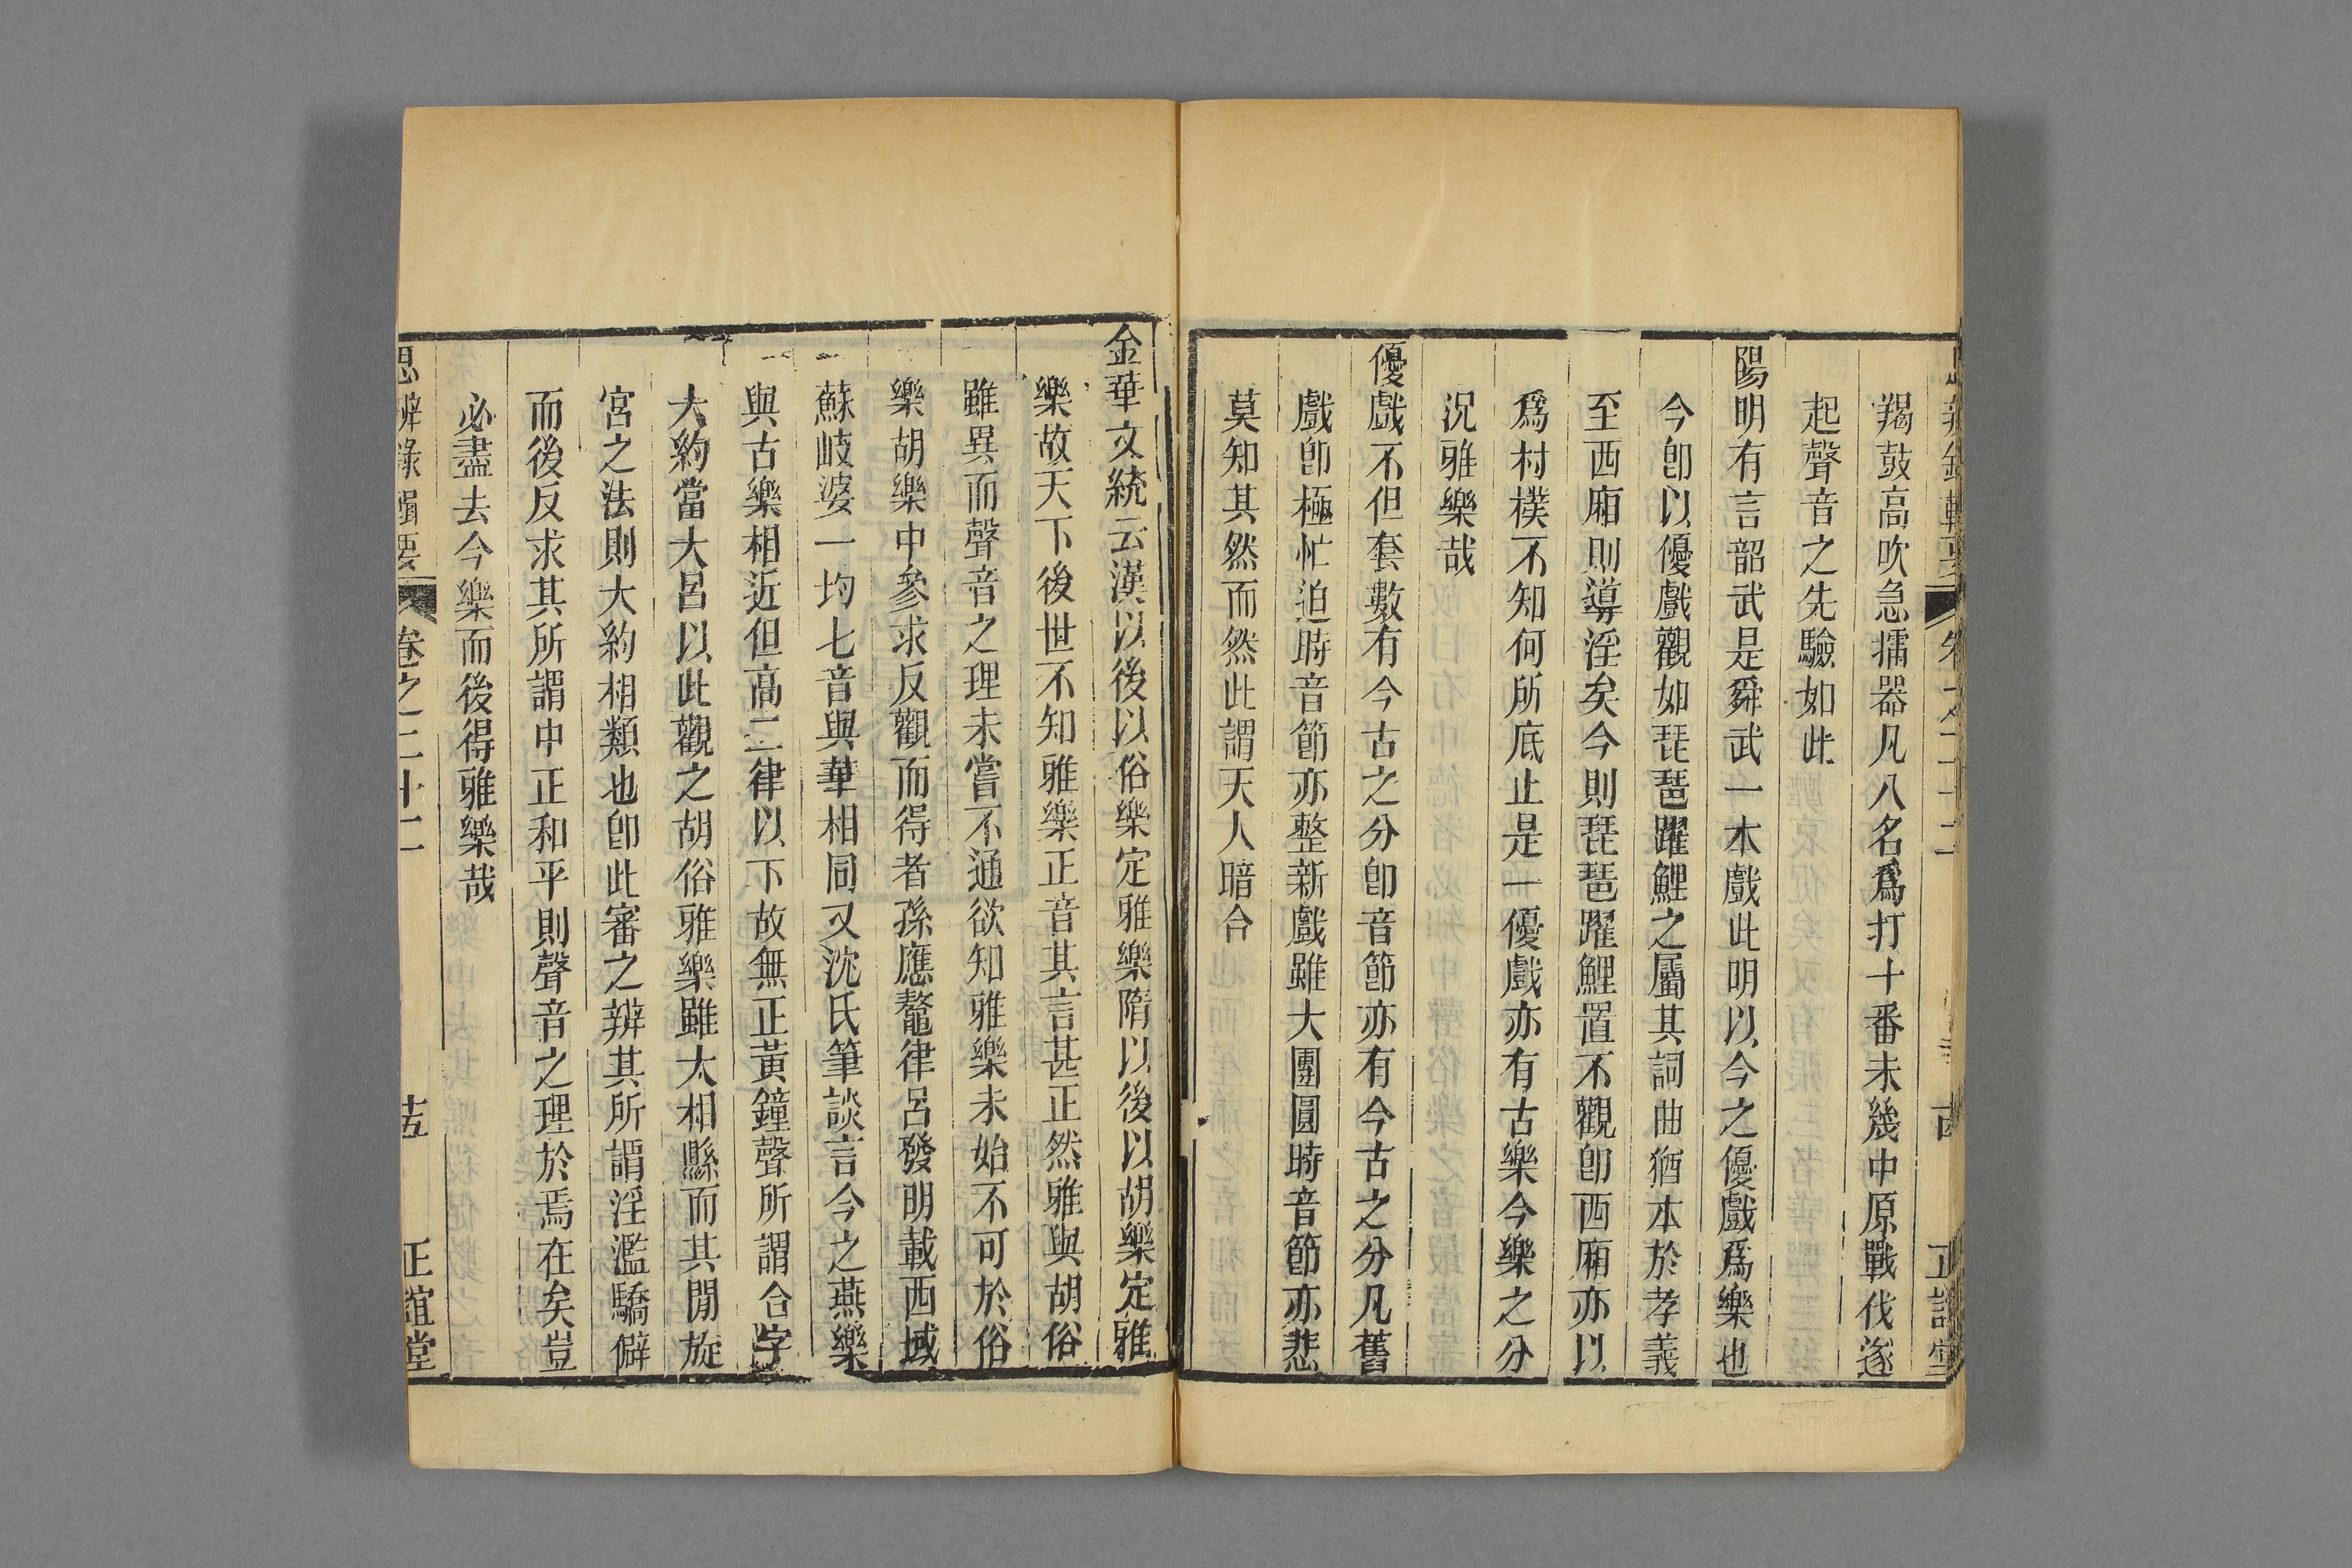 羯鼓高吹急擂器凡八名爲打十番未幾中原戰伐遂
起聲音之先驗如此
陽明有言韶武是舜武一本戲此明以今之優戲爲樂也
今卽以優戲觀如琵琶躍鯉之屬其詞曲猶本於孝義
至西廂則導淫矣今則琵琶躍鯉置不觀卽西廂亦以
爲村樸不知何所底止是一優戲亦有古樂今樂之分
況雅樂哉
優戲不但套數有今古之分卽音節亦有今古之分凡舊
戲卽極忙迫時音節亦整新戲雖大團圓時音節亦悲
莫知其然而然此謂天人暗合
金華文統云漢以後以俗樂定雅樂隋以後以胡樂定雅
樂故天下後世不知雅樂正音其言甚正然雅與胡俗
雖異而聲音之理未嘗不通欲知雅樂未始不可於俗
樂胡樂中參求反觀而得者孫應鰲律呂發明載西域
蘇岐婆一均七音與華相同又沈氏筆談言今之燕樂
與古樂相近但高二律以下故無正黃鐘聲所謂合字
大約當大呂以此觀之胡俗雅樂雖大相縣而其閒旋
宮之法則大約相類也卽此審之辨其所謂淫濫驕僻
而後反求其所謂中正和平則聲音之理於焉在矣豈
必盡去今樂而後得雅樂哉
思辨錄輯要 卷之二十二 十五 正誼堂